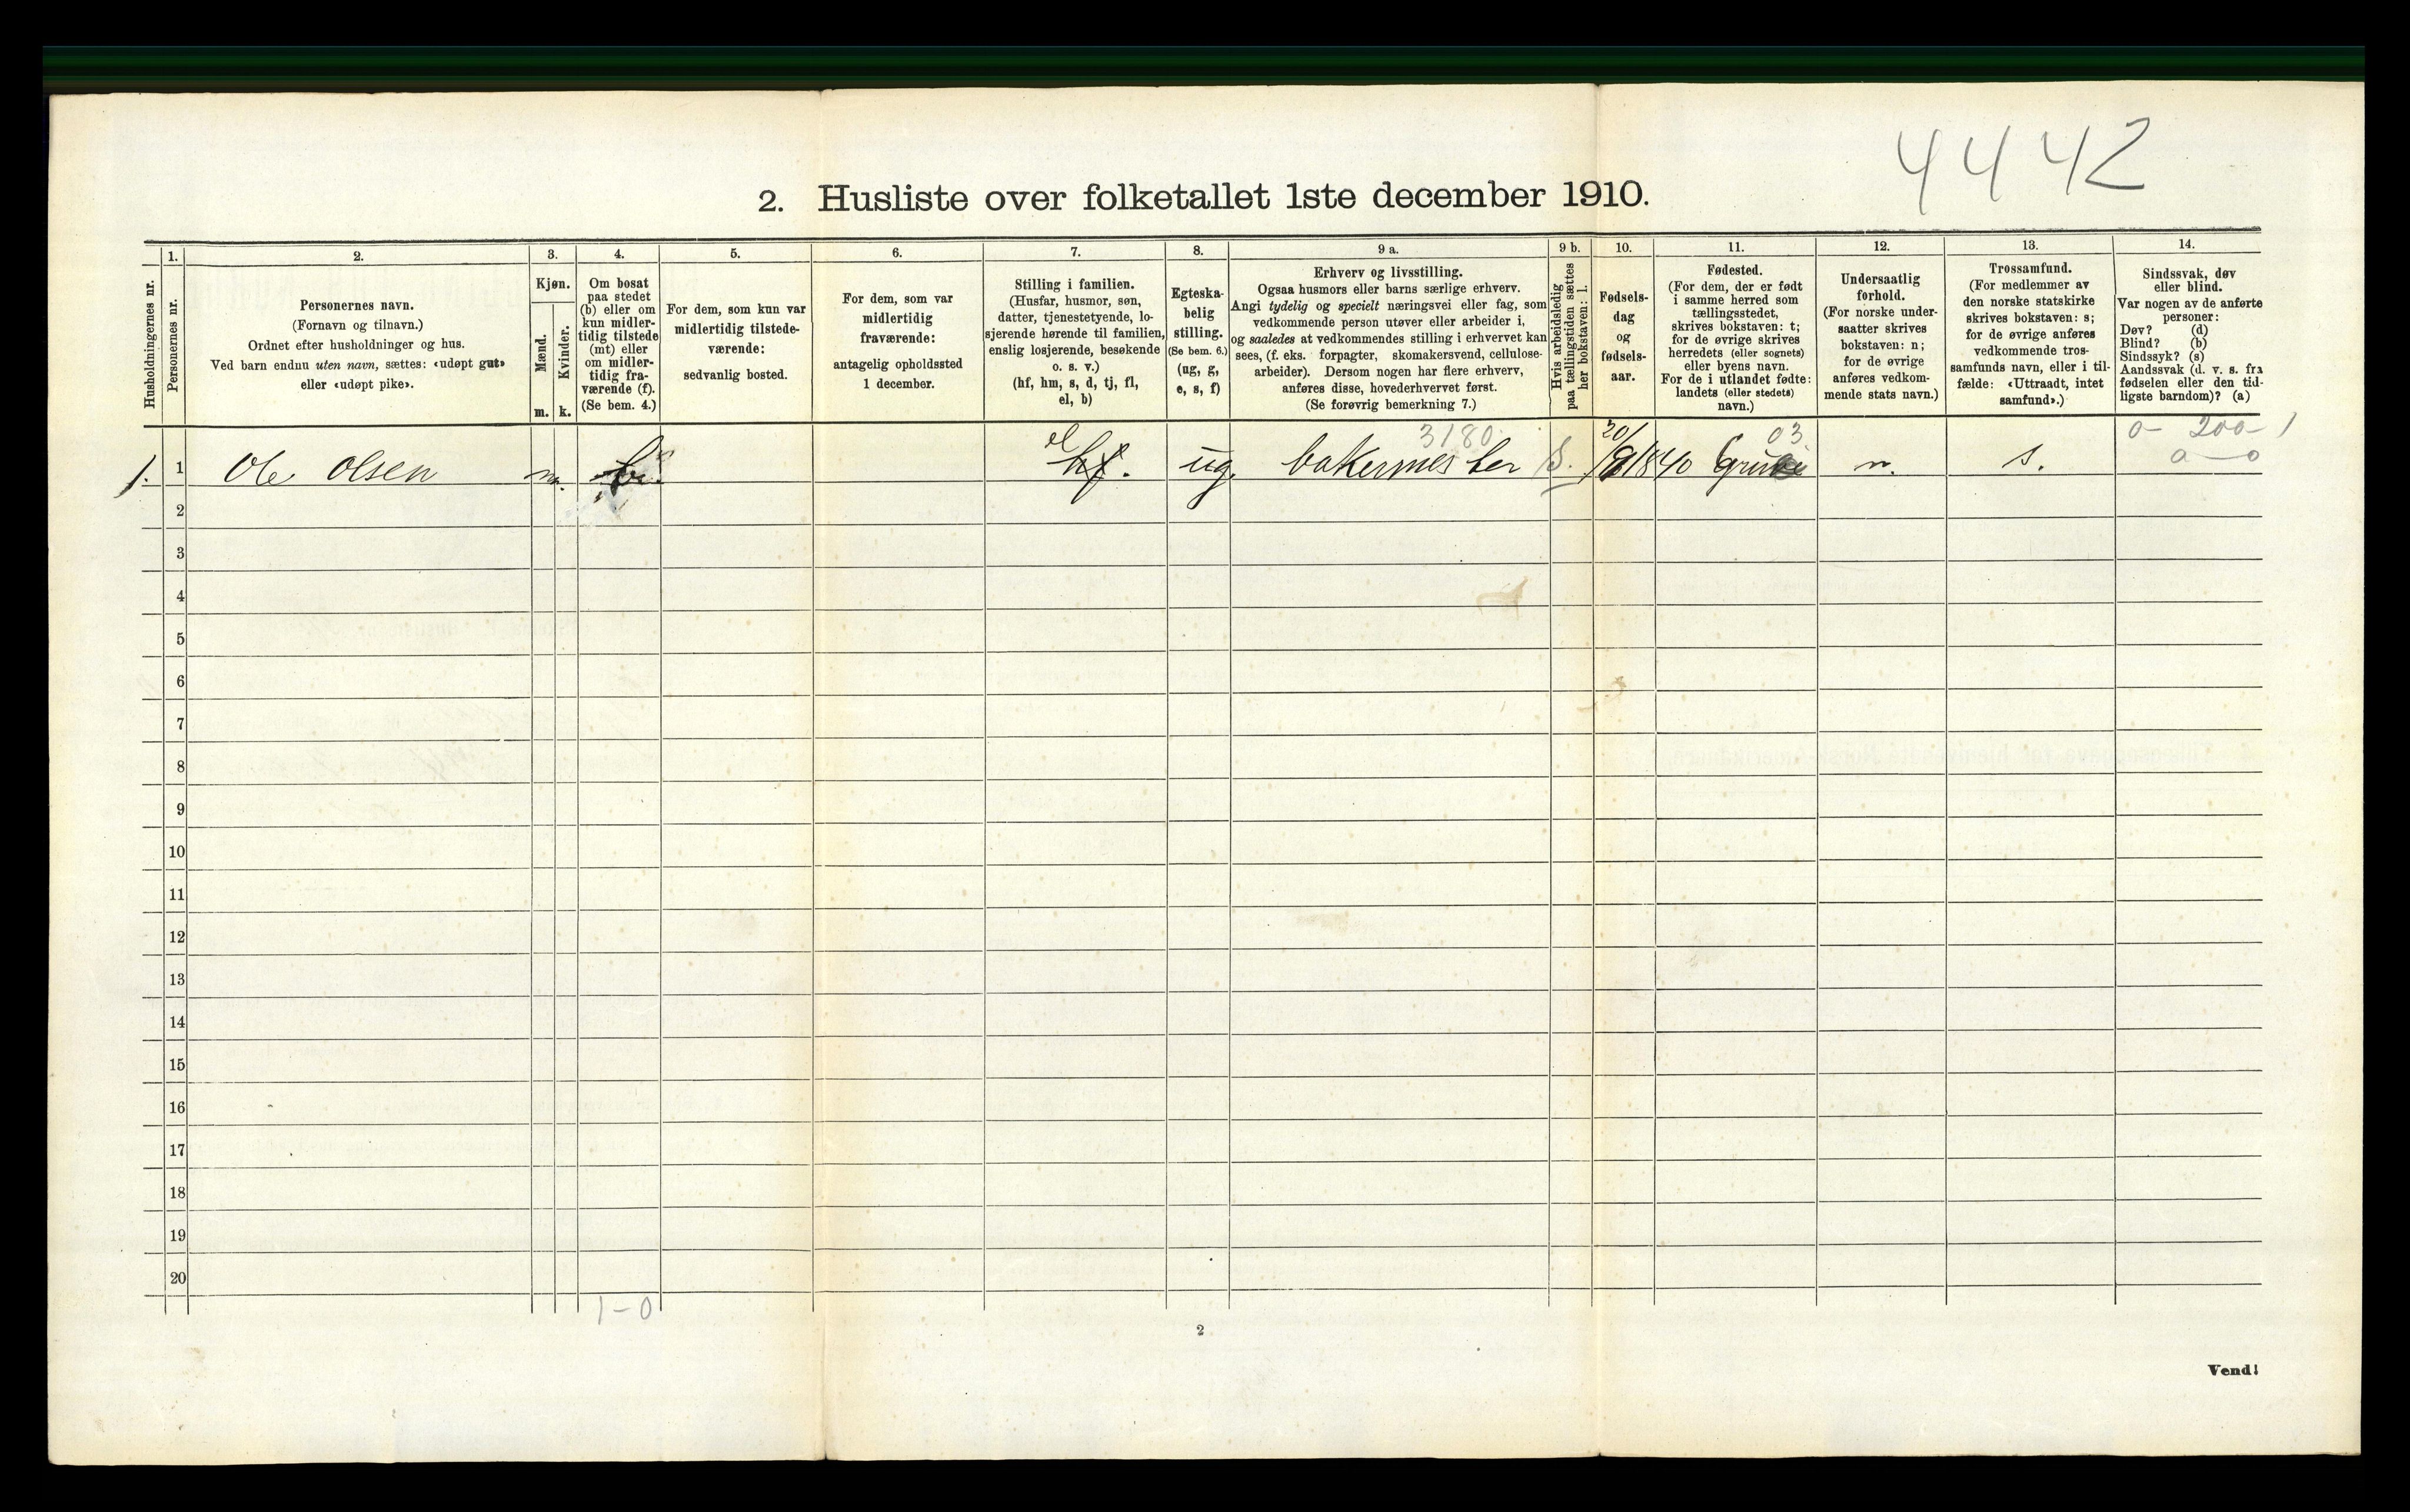 4442
2. Husliste over folketallet 1ste december 1910.
Husholdningernes nr.
1.
Personernes nr.
2.
Personernes navn.
(Fornavn og tilnavn.)
Ordnet efter husholdninger og hus.
Ved barn endnu uten navn, sættes: «udøpt gut»
eller «udøpt pike».
3.
Kjøn.
Mænd.
Kvinder.
m. k.
4.
Om bosat
paa stedet
(b) eller om
kun midler-
tidig tilstede
(mt) eller
om midler-
tidig fra-
værende (f).
(Se bem. 4.)
5.
For dem, som kun var
midlertidig tilstede-
værende:
sedvanlig bosted.
6.
For dem, som var
midlertidig
fraværende:
antagelig opholdssted
1 december.
7.
Stilling i familien.
(Husfar, husmor, søn,
datter, tjenestetyende, lo-
sjerende hørende til familien,
enslig losjerende, besøkende
o. s. v.)
(hf, hm, s, d, tj, fl,
el, b)
8.
Egteska-
belig
stilling.
(Se bem. 6.)
(ug, g,
e, s, f)
9 a.
Erhverv og livsstilling.
Ogsaa husmors eller barns særlige erhverv.
Angi tydelig og specielt næringsvei eller fag, som
vedkommende person utøver eller arbeider i,
og saaledes at vedkommendes stilling i erhvervet kan
sees, (f. eks. forpagter, skomakersvend, cellulose-
arbeider). Dersom nogen har flere erhverv,
anføres disse, hovederhvervet først.
(Se forøvrig bemerkning 7.)
9 b.
Hvis arbeidsledig
paa tællingstiden sættes
her bokstaven: l.
10.
Fødsels-
dag
og
fødsels-
aar.
11.
Fødested.
(For dem, der er født
i samme herred som
tællingsstedet,
skrives bokstaven: t;
for de øvrige skrives
herredets (eller sognets)
eller byens navn.
For de i utlandet fødte:
landets (eller stedets)
navn.)
12.
Undersaatlig
forhold.
(For norske under-
saatter skrives
bokstaven: n;
for de øvrige
anføres vedkom-
mende stats navn.)
13.
Trossamfund.
(For medlemmer av
den norske statskirke
skrives bokstaven: s;
for de øvrige anføres
vedkommende tros-
samfunds navn, eller i til-
fælde: «Uttraadt, intet
samfund».)
14.
Sindssvak, døv
eller blind.
Var nogen av de anførte
personer:
Døv? (d)
Blind? (b)
Sindssyk? (s)
Aandssvak (d. v. s. fra
fødselen eller den tid-
ligste barndom)? (a)
el 3180. 20/ 03. 0- 200- 1
1. 1 Ole Olsen m. b. hf. ug. bakermester 1840 n. s. 0-0
2
3
4
5
6
7
8
9
10
11
12
13
14
15
16
17
18
19
20
1-0
2
Vend!